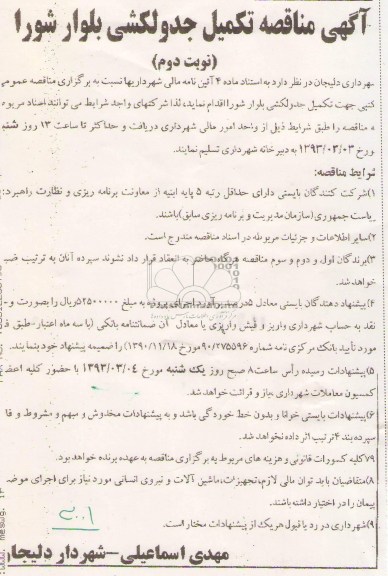 آگهی مناقصه تکمیل جدولکشی بلوار شورا
(نوبت دوم)
شهرداری دلیجان در نظر دارد به استناد ماده ۴ آئین نامه مالی شهرداریها نسبت به برگزاری مناقصه عمومی
کتبی جهت تکمیل جدولکشی بلوار شورا اقدام نماید، لذا شرکتهای واجد شرایط می توانند اسناد مربوط
به مناقصه را طبق شرایط ذیل از واحد امور مالی شهرداری دریافت و حداکثر تا ساعت ۱۳ روز شنبه
مورخ ۱۳۹۳/۰۳/۰۳ به دبیرخانه شهرداری تسلیم نمایند.
شرایط مناقصه:
۱)شرکت کنندگان بایستی دارای حداقل رتبه ۵ پایه ابنیه از معاونت برنامه ریزی و نظارت راهبردی
ریاست جمهوری(سازمان مدیریت و برنامه ریزی سابق)باشند.
۲)سایر اطلاعات و جزئیات مربوطه در اسناد مناقصه مندرج است.
۳)برندگان اول و دوم و سوم مناقصه هرگاه حاضر به انعقاد قرار داد نشوند سپرده آنان به ترتیب ضبط
خواهد شد.
۴)پیشنهاد دهندگان بایستی معادل ۵درصد برآورد اجرای پروژه به مبلغ ۵۲۵۰۰۰۰۰ریال را بصورت وجه
نقد به حساب شهرداری واریز و فیش واریزی یا معادل آن ضمانتنامه بانکی (با سه ماه اعتبار-طبق فرم
مورد تأیید بانک مرکزی نامه شماره ۹۰/۲۷۵۵۹۶مورخ ۱۳۹۰/۱۱/۱۸) را ضمیمه پیشنهاد خود بنمایند.
۵)پیشنهادات رسیده رأس ساعت۸ صبح روز یک شنبه مورخ ۱۳۹۳/۰۳/۰۴ با حضور کلیه اعضاء
کمسیون معاملات شهرداری باز و قرائت خواهد شد.
۶)پیشنهادات بایستی خوانا و بدون خط خوردگی باشد و به پیشنهادات مخدوش و مبهم و مشروط و فاقد
سپرده بند ۴ ترتیب اثر داده نخواهد شد.
۷)کلیه کسورات قانونی و هزینه های مربوط به برگزاری مناقصه به عهده برنده خواهد بود.
۸)متقاضیان باید توان مالی لازم،تجهیزات،ماشین آلات و نیروی انسانی مورد نیاز برای اجرای موضوع
پیمان را در اختیار داشته باشند.
۹)شهرداری در رد یا قبول هریک از پیشنهادات مختار است.
مهدی اسماعیلی-شهردار دلیجان